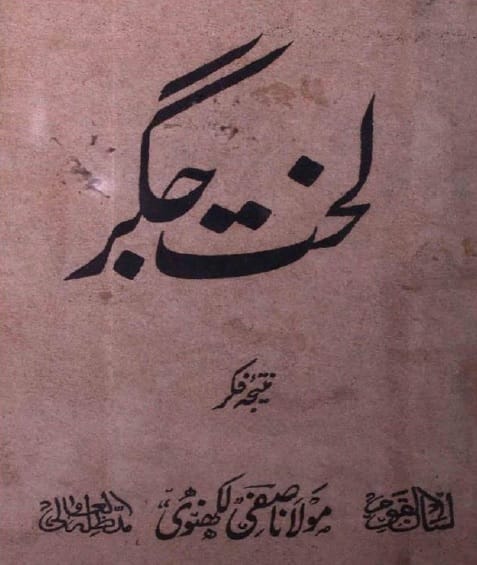 لخت جگر
نتیجۂ فکر
لسان القوم مولانا صفی لکھنوی مدظلہ العالی